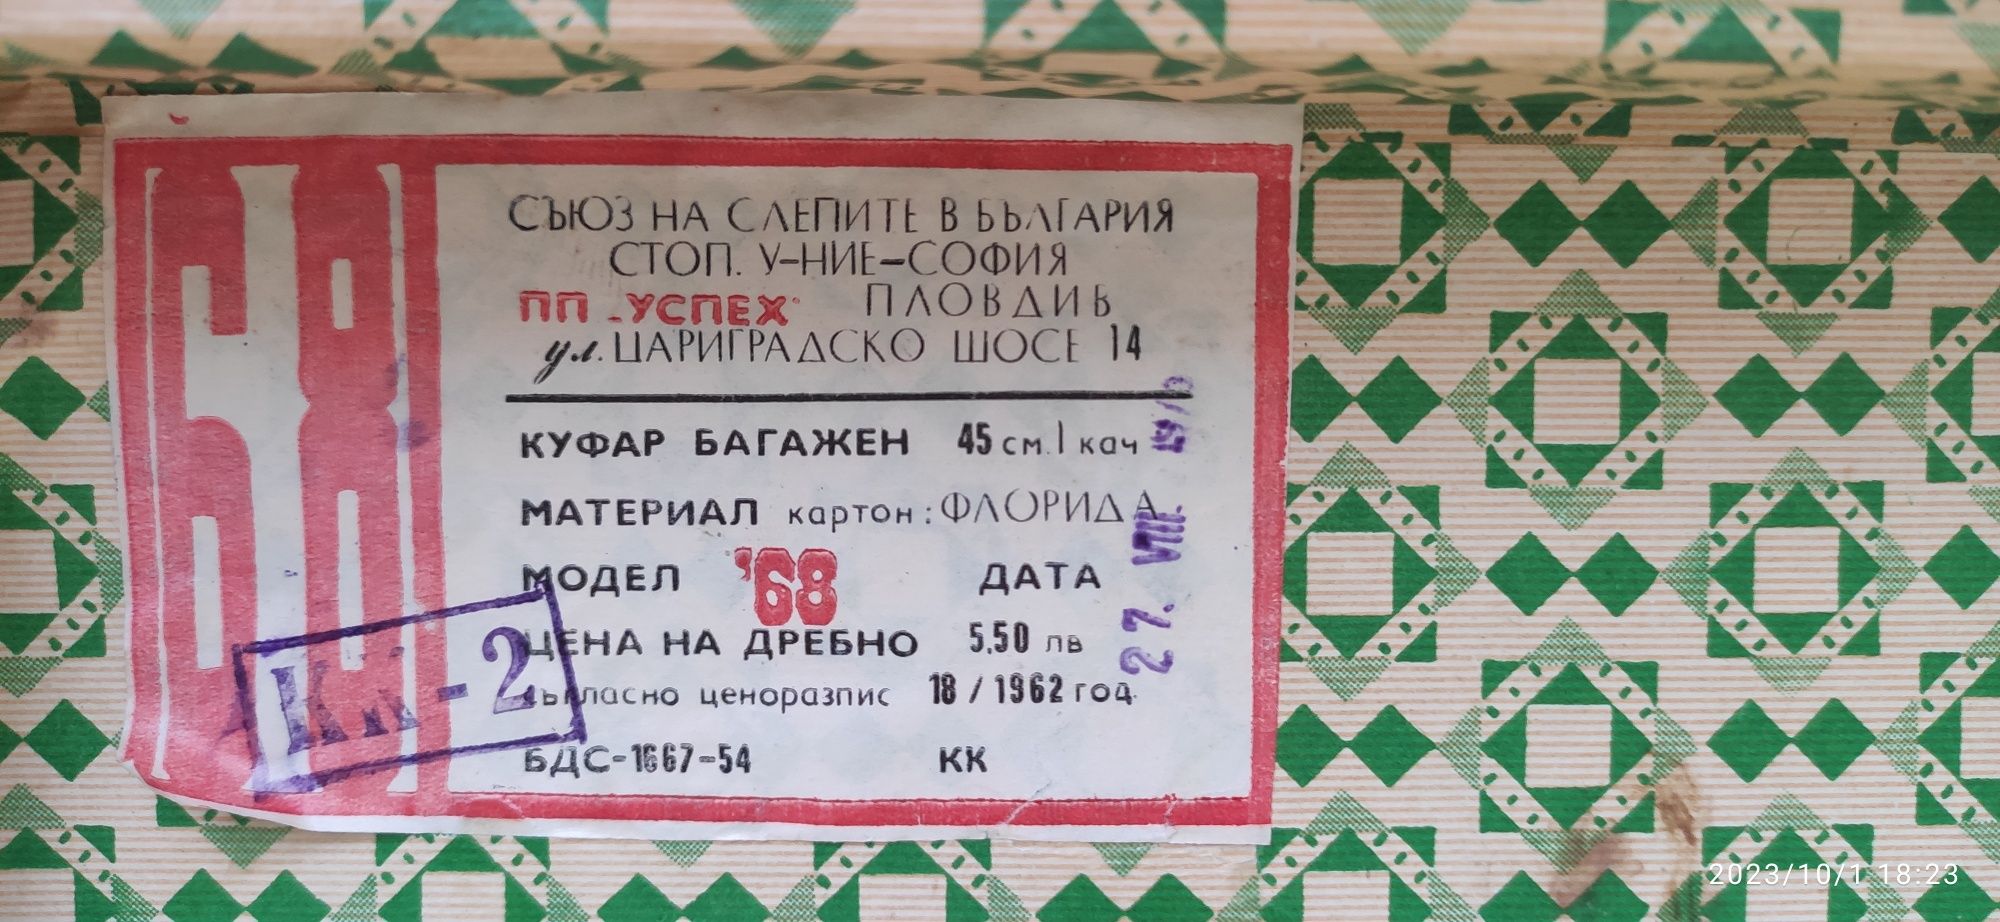 68
СЪЮЗ НА СЛЕПИТЕ В БЪЛГАРИЯ
СТОП. У-НИЕ-СОФИЯ
ПП „УСПЕХ" ПЛОВДИВ
ул. ЦАРИГРАДСКО ШОСЕ 14
КУФАР БАГАЖЕН 45 см. I кач
МАТЕРИАЛ картон: ФЛОРИДА
МОДЕЛ '68 ДАТА
27. VIII.
ЦЕНА НА ДРЕБНО 5,50 лв
съгласно ценоразпис 18 / 1962 год.
БДС-1667-54 КК
КК-2
2023/10/1 18:23